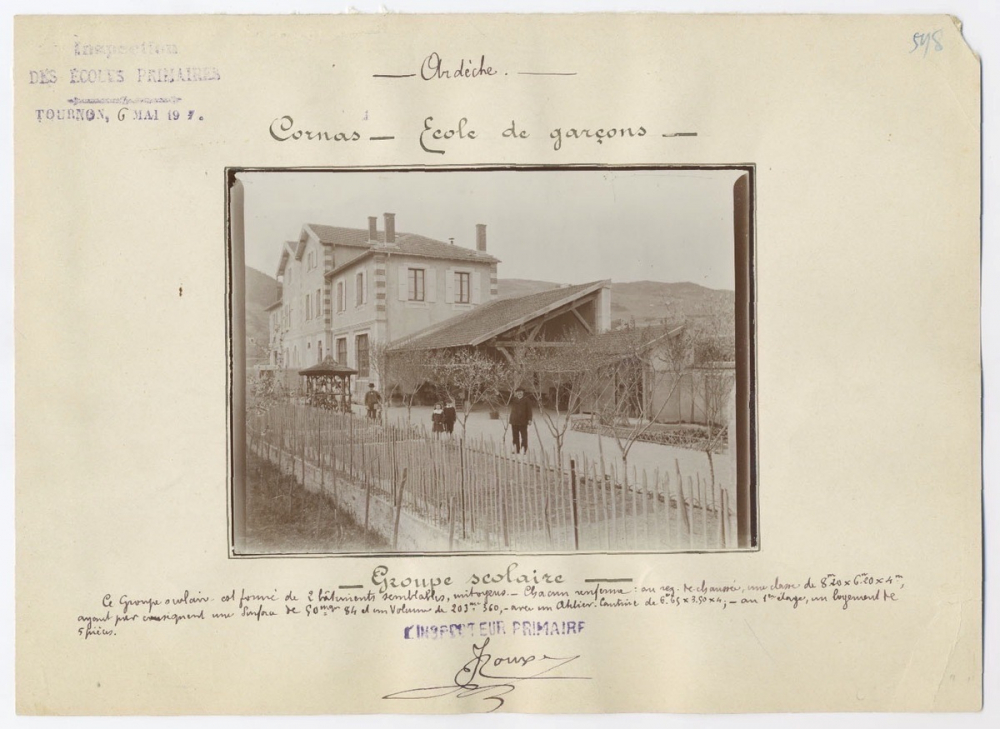 Inspection
DES ÉCOLES PRIMAIRES
TOURNON, 6 MAI 19
598
Ardèche.
Cornas — Ecole de garçons —
— Groupe scolaire —
Ce Groupe scolaire est formé de 2 bâtiments semblables, mitoyens. — Chacun renferme : au rez-de-chaussée, une classe de 8m20 × 6m20 × 4m,
ayant par conséquent une surface de 50mq 84 et un volume de 203mc 360, — avec un Atelier-Cantine de 6m65 × 3.50 × 4; — au 1er étage, un logement de
5 pièces.
L'INSPECTEUR PRIMAIRE
Roux